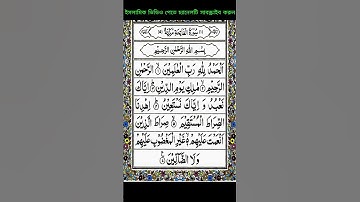 ইসলামিক ভিডিও পেতে চ্যানেলটি সাবস্ক্রাইব করুন
سُوْرَةُ الْفَاتِحَةِ مَكِّيَّةٌ
بِسْمِ اللّٰهِ الرَّحْمٰنِ الرَّحِيْمِ
اَلْحَمْدُ لِلّٰهِ رَبِّ الْعٰلَمِيْنَ ۙ الرَّحْمٰنِ
الرَّحِيْمِ ۙ مٰلِكِ يَوْمِ الدِّيْنِ ؕ اِيَّاكَ
نَعْبُدُ وَ اِيَّاكَ نَسْتَعِيْنُ ؕ اِهْدِنَا
الصِّرَاطَ الْمُسْتَقِيْمَ ۙ صِرَاطَ الَّذِيْنَ
اَنْعَمْتَ عَلَيْهِمْ ۙ غَيْرِ الْمَغْضُوْبِ عَلَيْهِمْ
وَلَا الضَّآلِّيْنَ